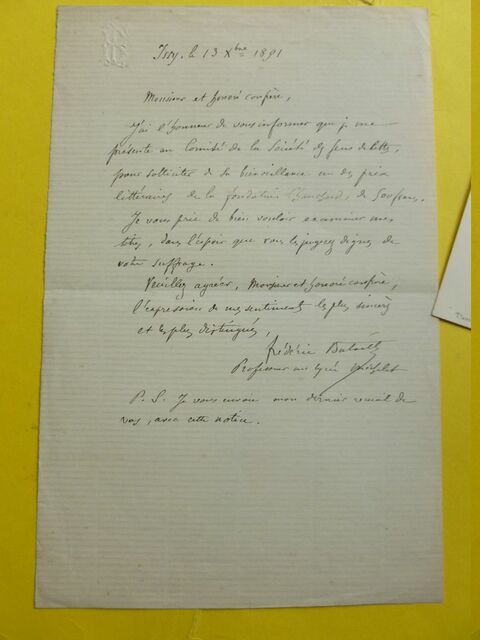 Issy, le 13 Xbre 1891
Monsieur et honoré confrère,
J'ai l'honneur de vous informer que je me
présente au Comité de la Société des Gens de lettres,
pour solliciter de sa bienveillance un des prix
littéraires de la fondation de 500 francs.
Je vous prie de bien vouloir examiner mes
titres, dans l'espoir que vous les jugerez dignes de
votre suffrage.
Veuillez agréer, Monsieur et honoré confrère,
l'expression de mes sentiments les plus sincères
et les plus distingués,
Frédéric Bataille
Professeur au lycée Michelet
P. S. Je vous envoie mon dernier recueil de
vers, avec cette notice.